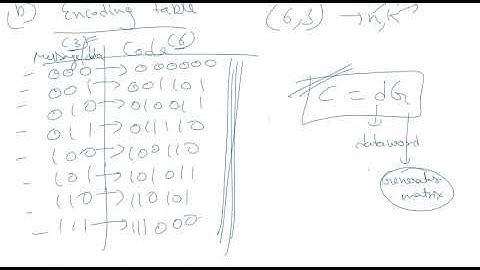 (b) Encoding table
(6,3) → n,k
(3) (6)
Message/data Code
000 → 000000
001 → 001101
010 → 010011
011 → 011110
100 → 100110
101 → 101011
110 → 110101
111 → 111000
C = dG
dataword
Generator matrix